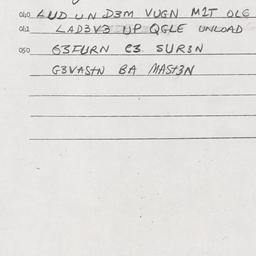 040 LUD UN D3M VUGN M1T OLG
042 LAD3V3 UP QGLE UNLOAD
050 G3FURN C3 SUR3N
G3VASTN BA MAST3N